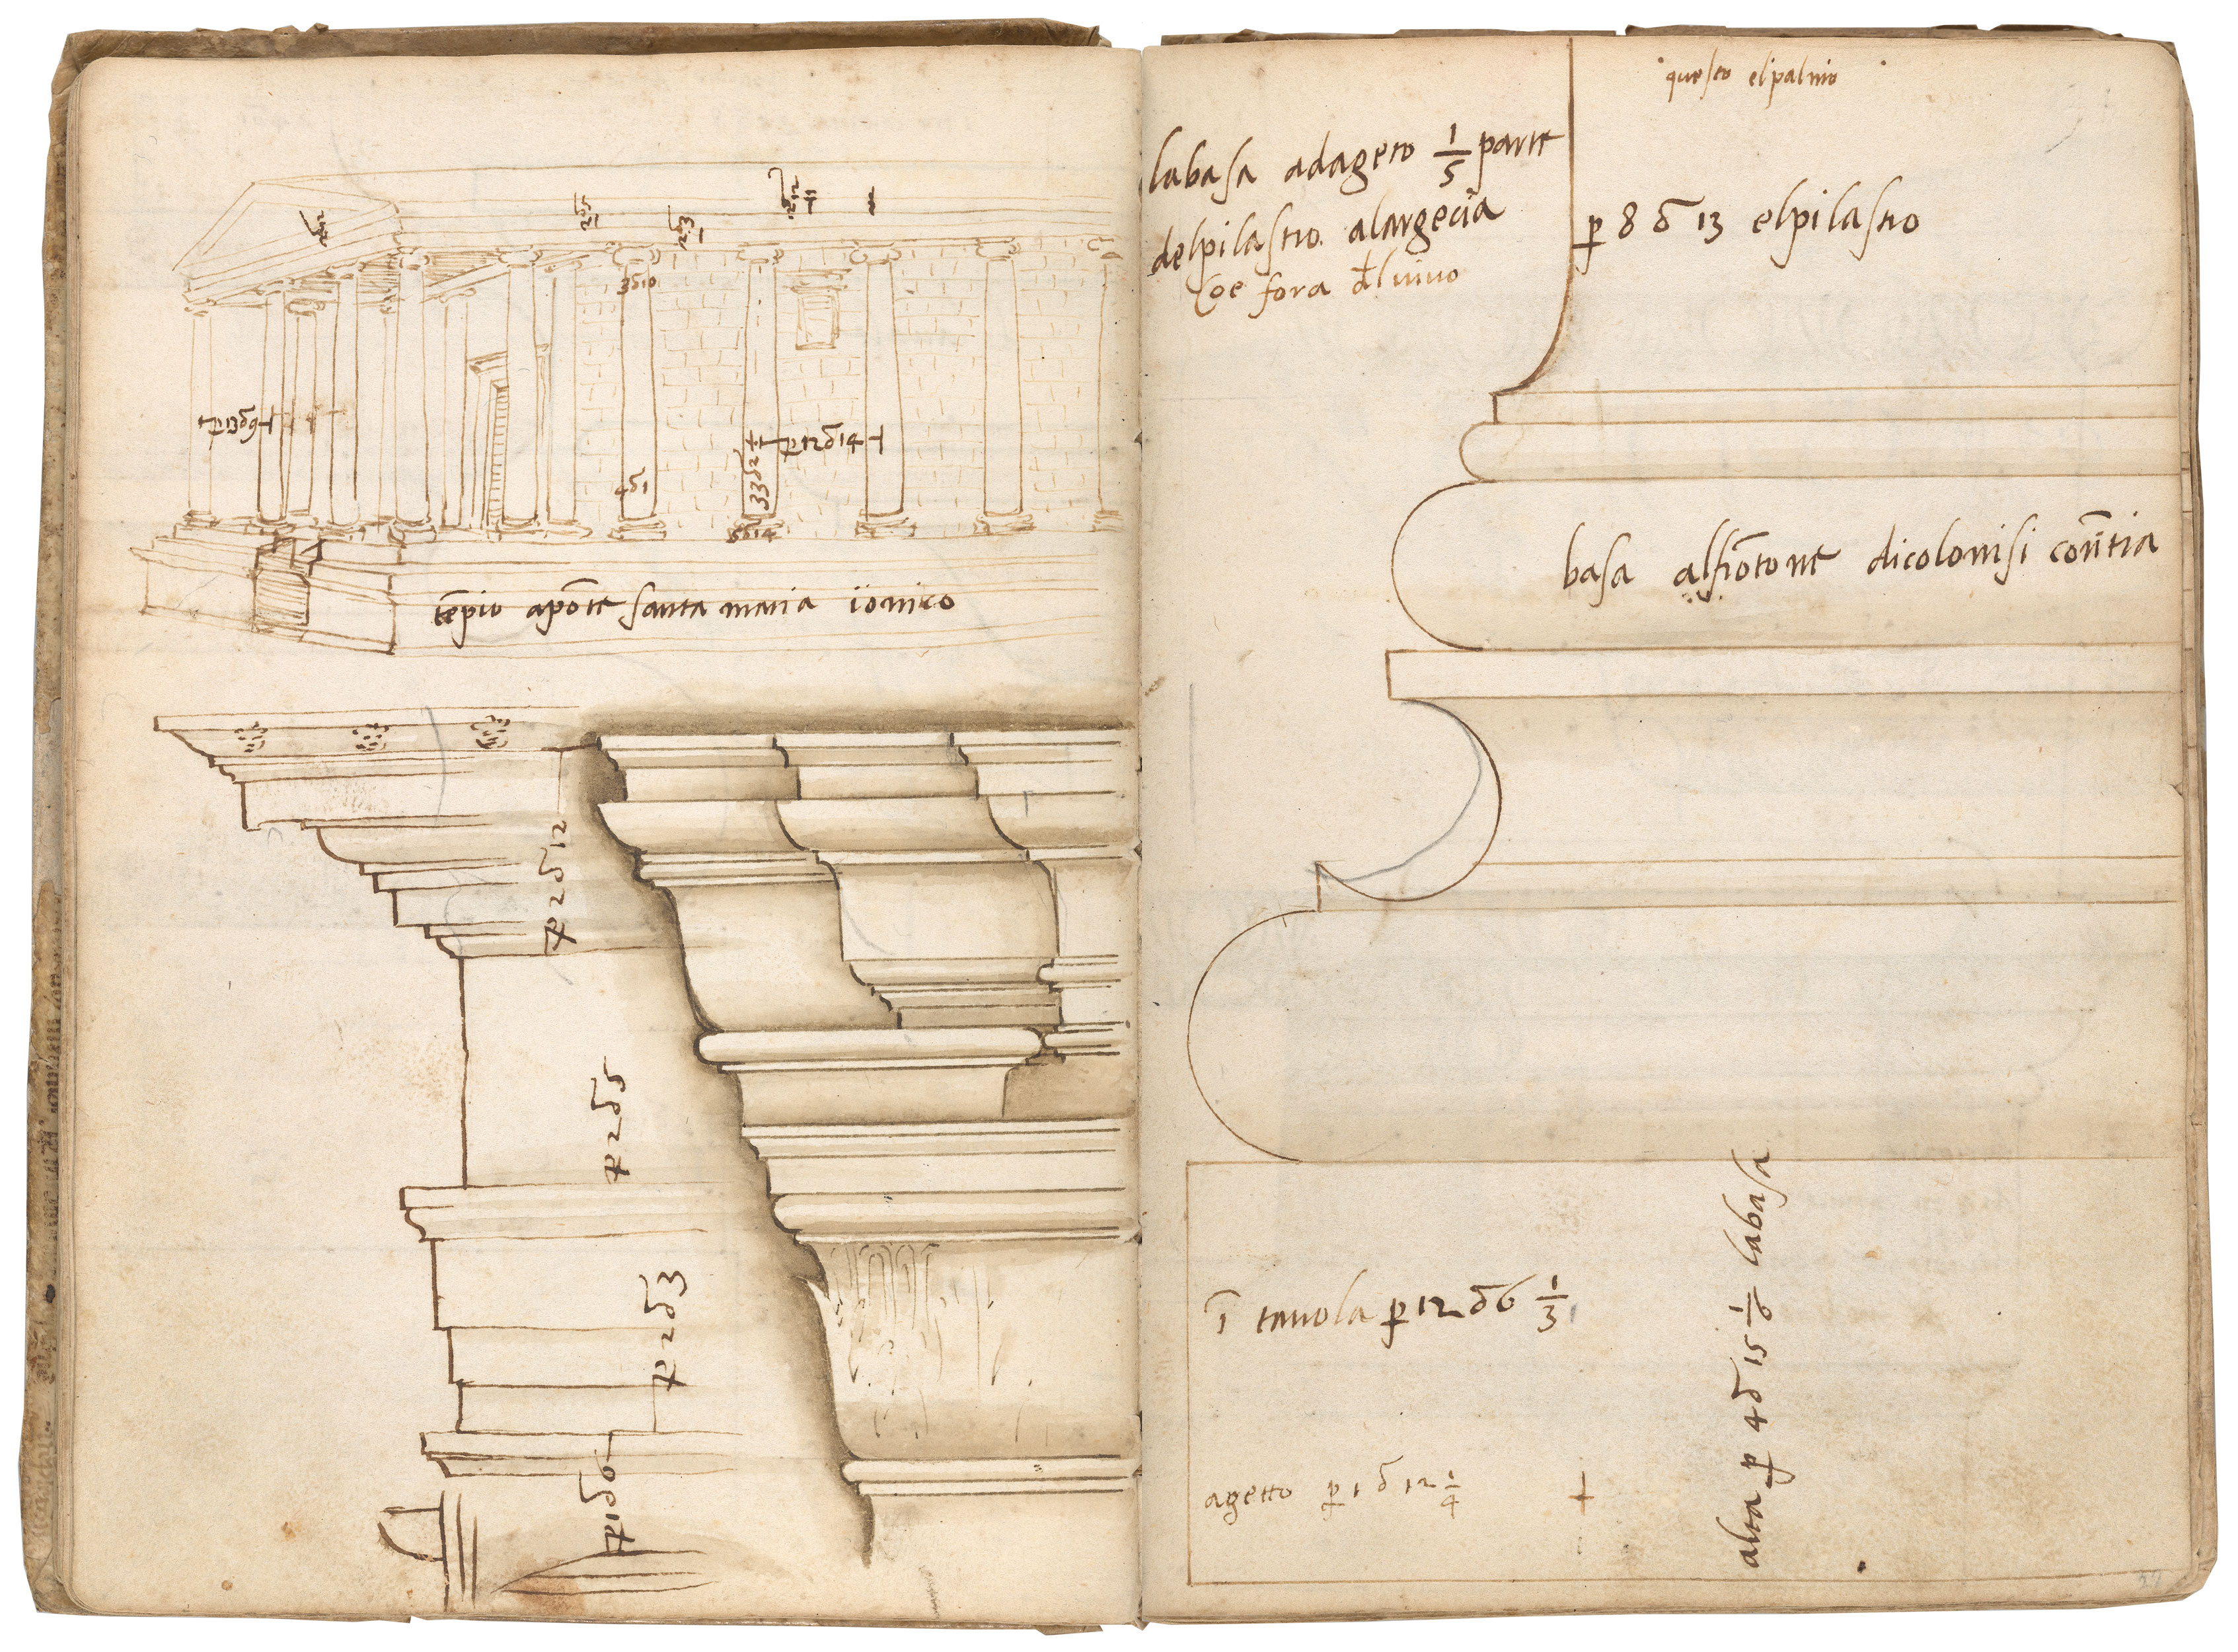 3δ10
p 13δ9
p 12δ14
4δ1
33δ2
5δ14
tēpio apōte santa maria ionico
p 2δ12
p 2δ5
p 2δ3
p 1δ6
questo elpalmo
labasa adageto 1/5 parte
delpilastro alargecia
che fora dl vivo
p 8 δ 13 elpilastro
basa alfrōtone dicolonisi corītia
ī tauola p 12 δ6 1/3
agetto p 1 δ 12 1/4
alta p 4δ 15 1/6 labasa